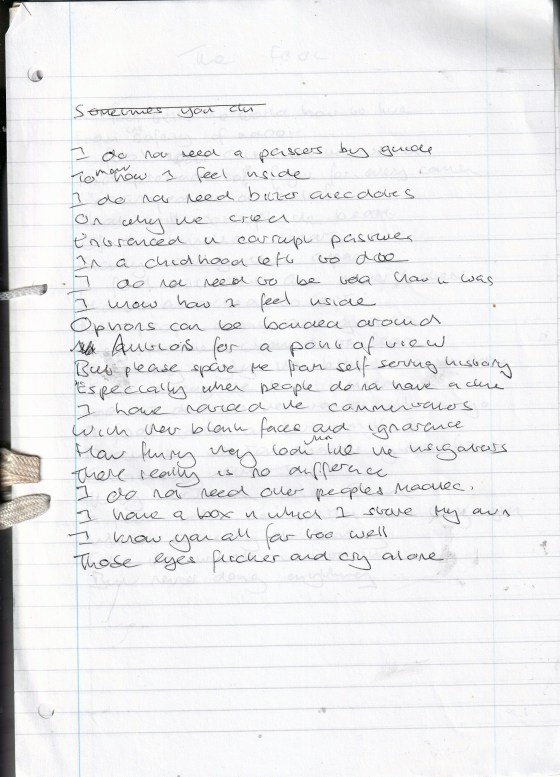 Sometimes you do
I do not need a passers by guide
To map how I feel inside
I do not need bitter anecdotes
On why we cried
Entranced in corrupt pastures
In a childhood left to die
I do not need to be told how it was
I know how I feel inside
Opinions can be banded around
Ambitions for a point of view
But please spare me from self serving history
Especially when people do not have a clue
I have noticed the commentators
With their blank faces and ignorance
How funny they look just like the instigators
There really is no difference
I do not need other peoples
I have a box in which I store my own
I know you all far too well
Those eyes flicker and cry alone